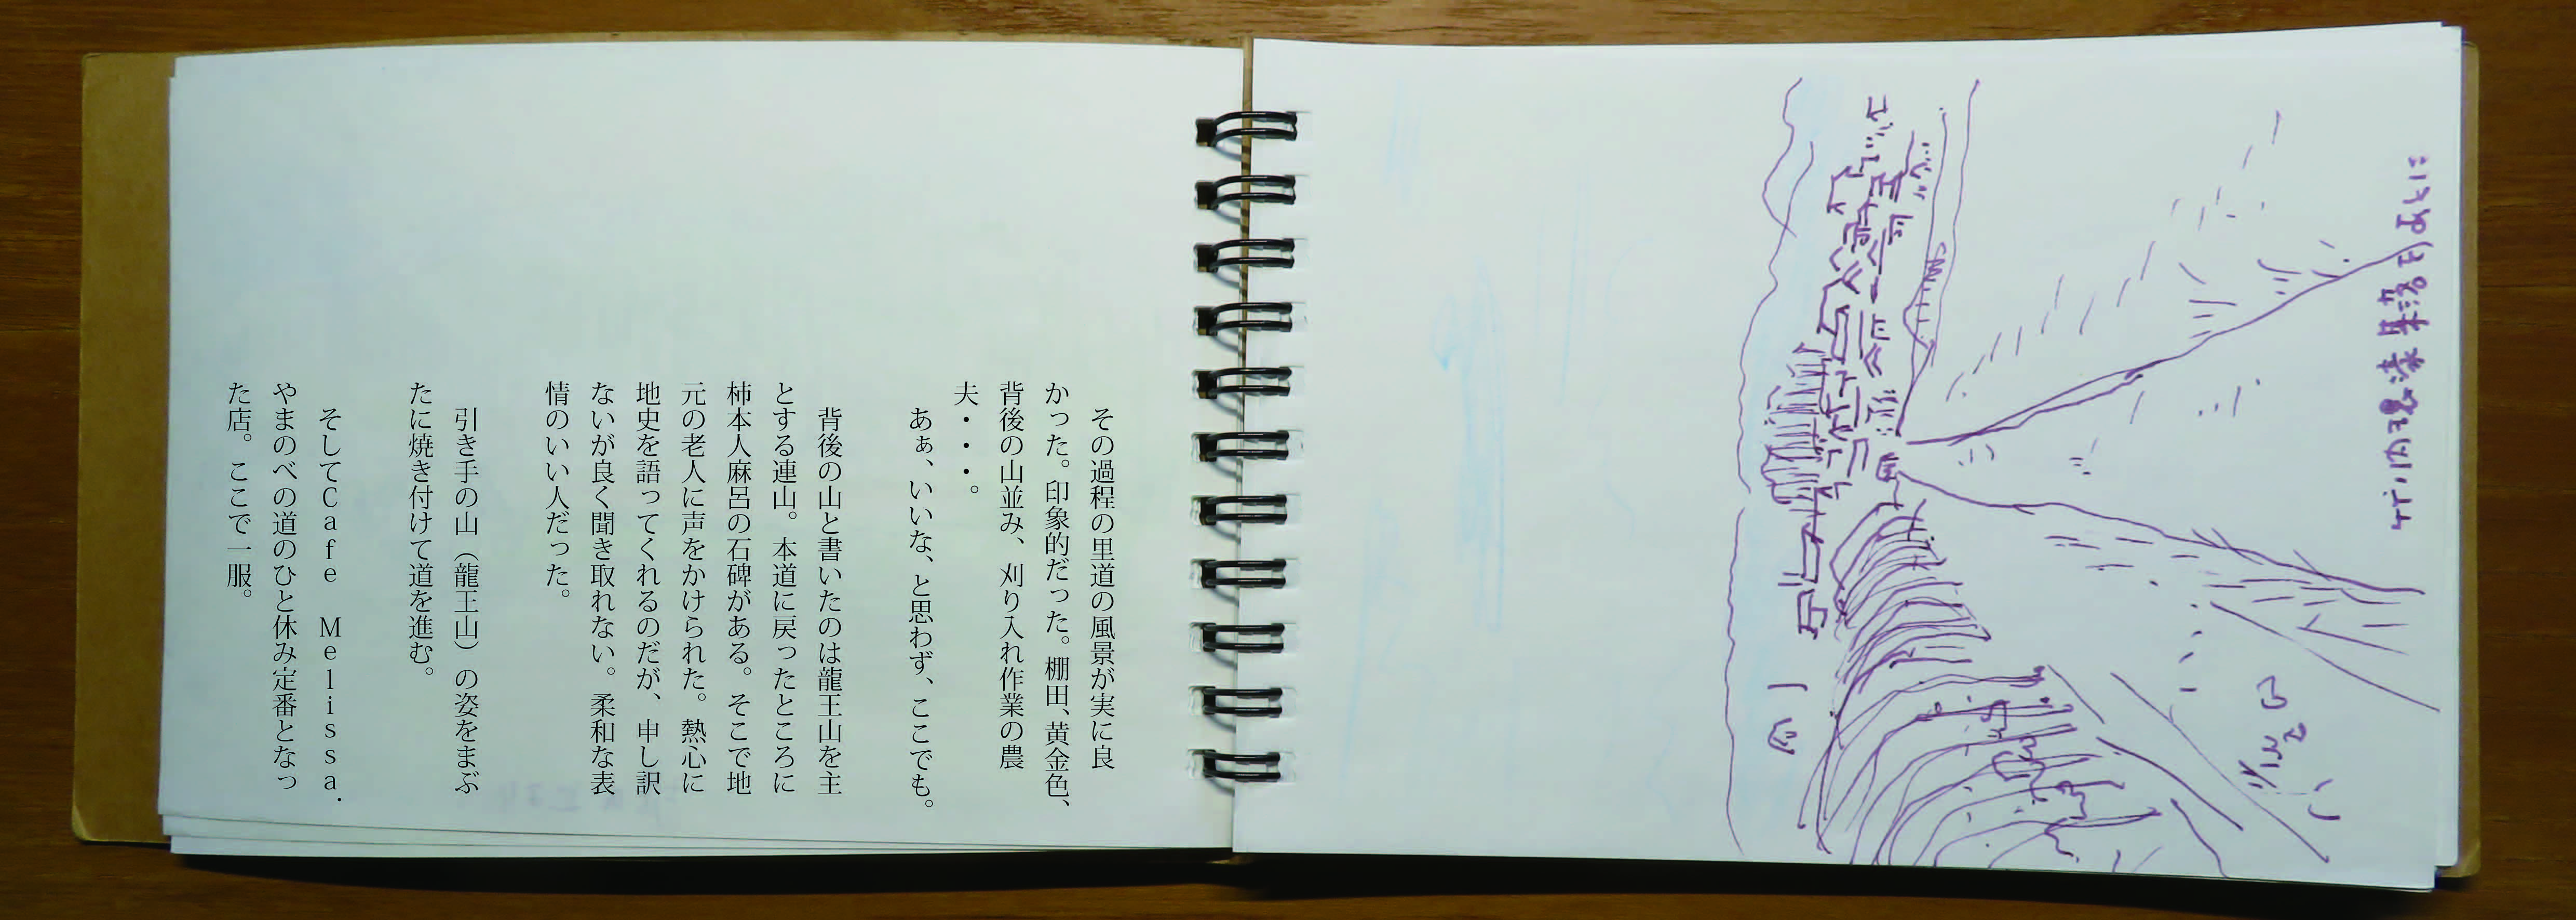 その過程の里道の風景が実に良
かった。印象的だった。棚田、黄金色、
背後の山並み、刈り入れ作業の農
夫・・・。
あぁ、いいな、と思わず、ここでも。
背後の山と書いたのは龍王山を主
とする連山。本道に戻ったところに
柿本人麻呂の石碑がある。そこで地
元の老人に声をかけられた。熱心に
地史を語ってくれるのだが、申し訳
ないが良く聞き取れない。柔和な表
情のいい人だった。
引き手の山（龍王山）の姿をまぶ
たに焼き付けて道を進む。
そしてCafe Melissa.
やまのべの道のひと休み定番となっ
た店。ここで一服。
竹ノ内環濠集落をあとに